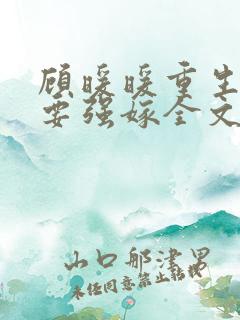 顾暖暖重生
要强嫁全文
山口那津男
未经同意禁止转载